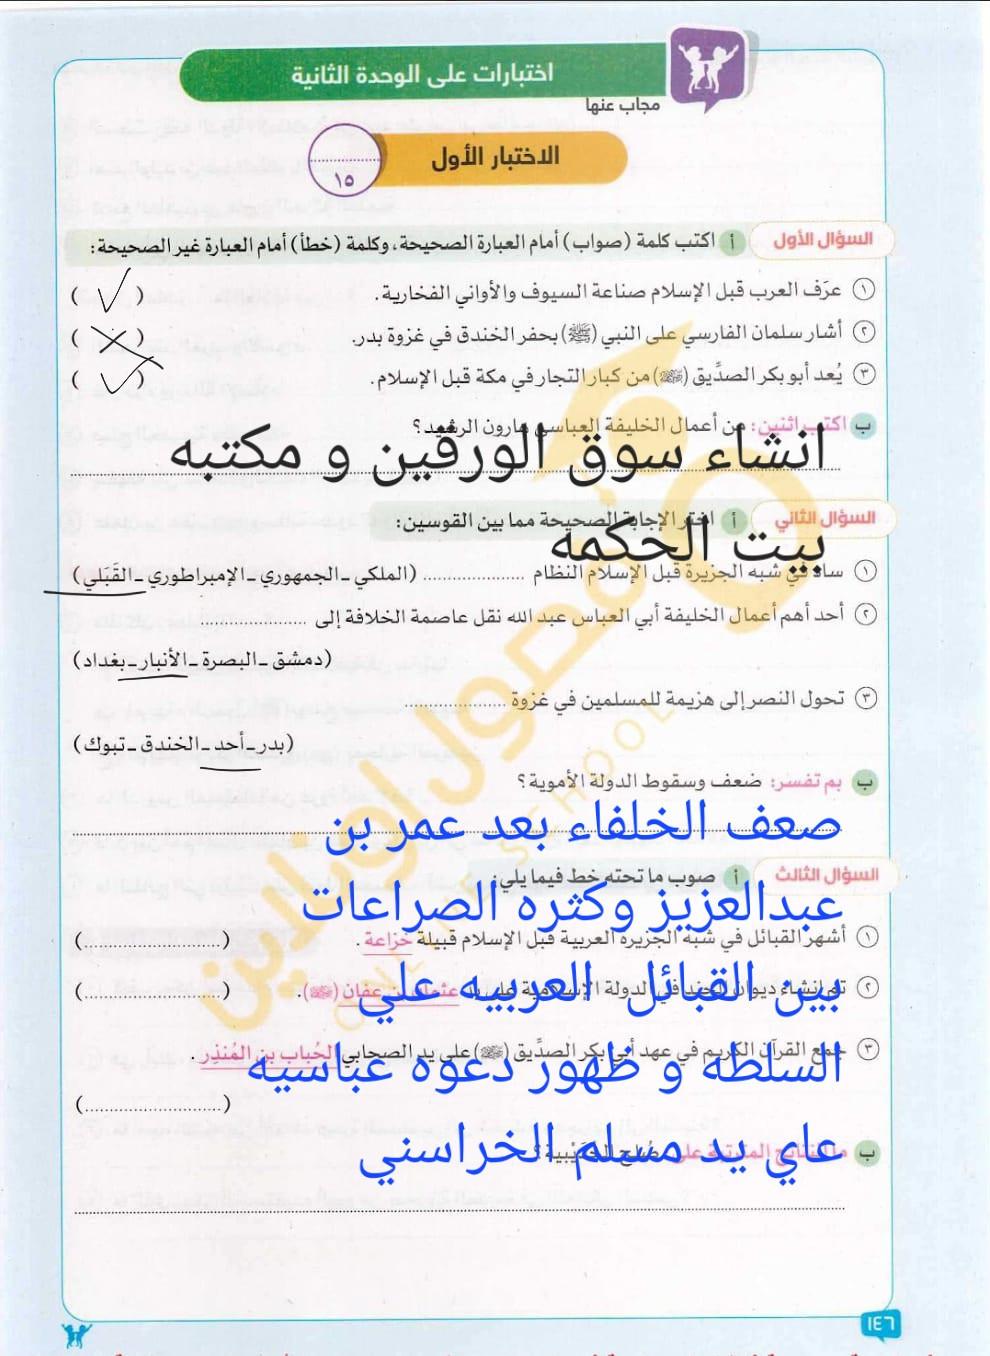 اختبارات على الوحدة الثانية
مجاب عنها
الاختبار الأول
١٥
السؤال الأول
أ اكتب كلمة (صواب) أمام العبارة الصحيحة، وكلمة (خطأ) أمام العبارة غير الصحيحة:
١ عرَف العرب قبل الإسلام صناعة السيوف والأواني الفخارية. ( ✓ )
٢ أشار سلمان الفارسي على النبي (ﷺ) بحفر الخندق في غزوة بدر. ( ✗ )
٣ يُعد أبو بكر الصدِّيق (رضي الله عنه) من كبار التجار في مكة قبل الإسلام. ( ✓ )
ب اكتب اثنين: من أعمال الخليفة العباسي هارون الرشيد؟
انشاء سوق الورقين و مكتبه
بيت الحكمه
السؤال الثاني
أ اختر الإجابة الصحيحة مما بين القوسين:
١ ساد في شبه الجزيرة قبل الإسلام النظام .................... (الملكي ـ الجمهوري ـ الإمبراطوري ـ القَبَلي)
٢ أحد أهم أعمال الخليفة أبي العباس عبد الله نقل عاصمة الخلافة إلى ....................
(دمشق ـ البصرة ـ الأنبار ـ بغداد)
٣ تحول النصر إلى هزيمة للمسلمين في غزوة ....................
(بدر ـ أحد ـ الخندق ـ تبوك)
ب بم تفسر: ضعف وسقوط الدولة الأموية؟
صعف الخلفاء بعد عمر بن
عبدالعزيز وكثره الصراعات
بين القبائل العربيه علي
السلطه و ظهور دعوه عباسيه
علي يد مسلم الخراسني
السؤال الثالث
أ صوب ما تحته خط فيما يلي:
١ أشهر القبائل في شبه الجزيرة العربية قبل الإسلام قبيلة خزاعة. (........................)
٢ تم إنشاء ديوان الجند في الدولة الإسلامية على يد عثمان بن عفان (رضي الله عنه). (........................)
٣ جمع القرآن الكريم في عهد أبي بكر الصدِّيق (رضي الله عنه) على يد الصحابي الحُباب بن المُنذِر.
(........................)
ب ما النتائج المترتبة على: صُلح الحُدَيْبية؟
١٤٦